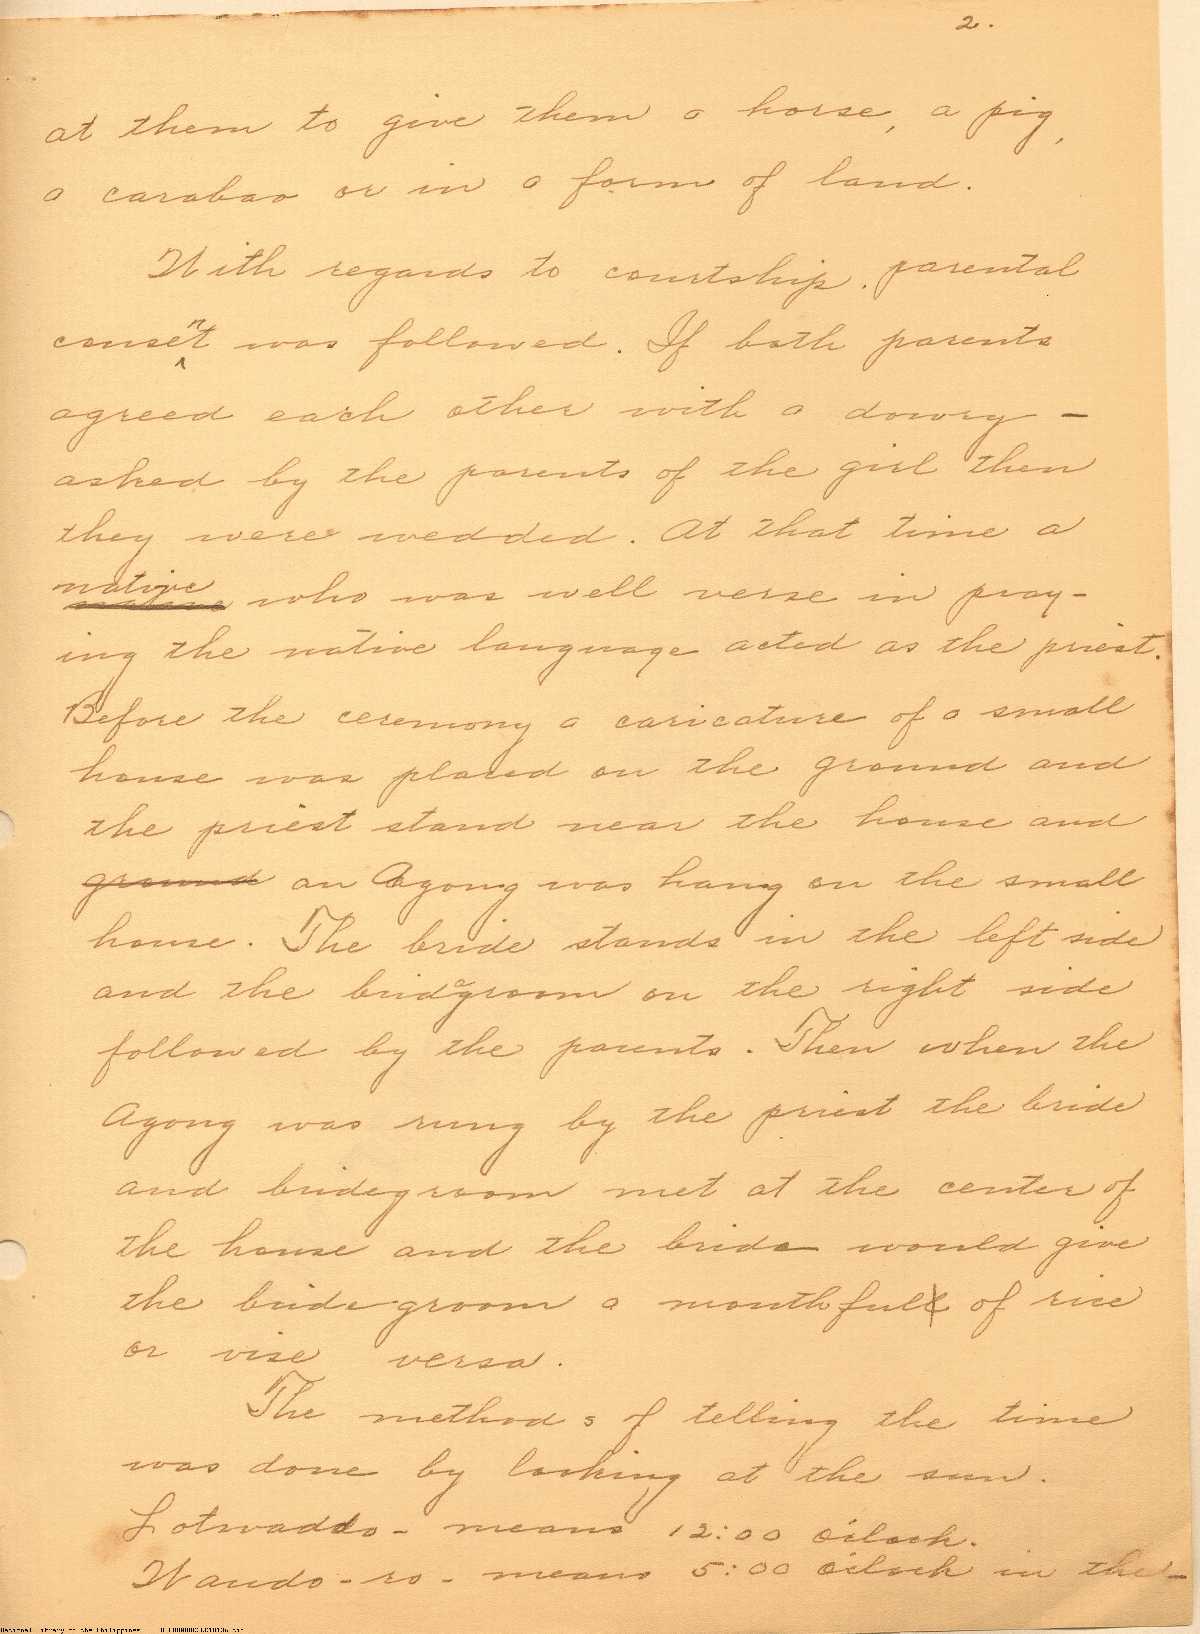 2.
at them to give them a horse, a pig,
a carabao or in a form of land.
With regards to courtship, parental
consent was followed. If both parents
agreed each other with a dowry -
asked by the parents of the girl then
they were wedded. At that time a
native who was well verse in pray-
ing the native language acted as the priest.
Before the ceremony a caricature of a small
house was placed on the ground and
the priest stand near the house and
ground an Agong was hang on the small
house. The bride stands in the left side
and the bridegroom on the right side
followed by the parents. Then when the
Agong was rung by the priest the bride
and bridegroom met at the center of
the house and the bride would give
the bridegroom a mouthful of rice
or vise versa.
The methods of telling the time
was done by looking at the sun.
Lotwaddo - means 12:00 o'clock.
Wando-ro - means 5:00 o'clock in the -
National Library of the Philippines